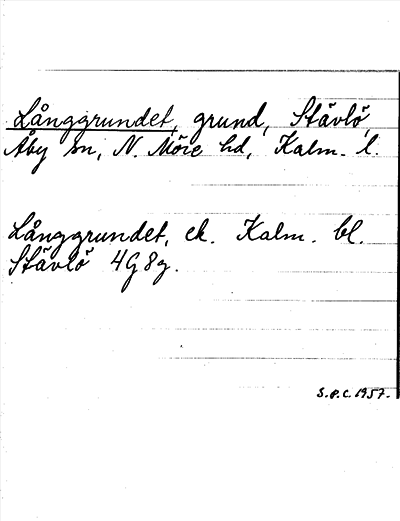 Långgrundet, grund, Stävlö,
Åby sn, N. Möre hd, Kalm. l.
Långgrundet, ek. Kalm. bl.
Stävlö 4G8g.
S.P.C. 1957.